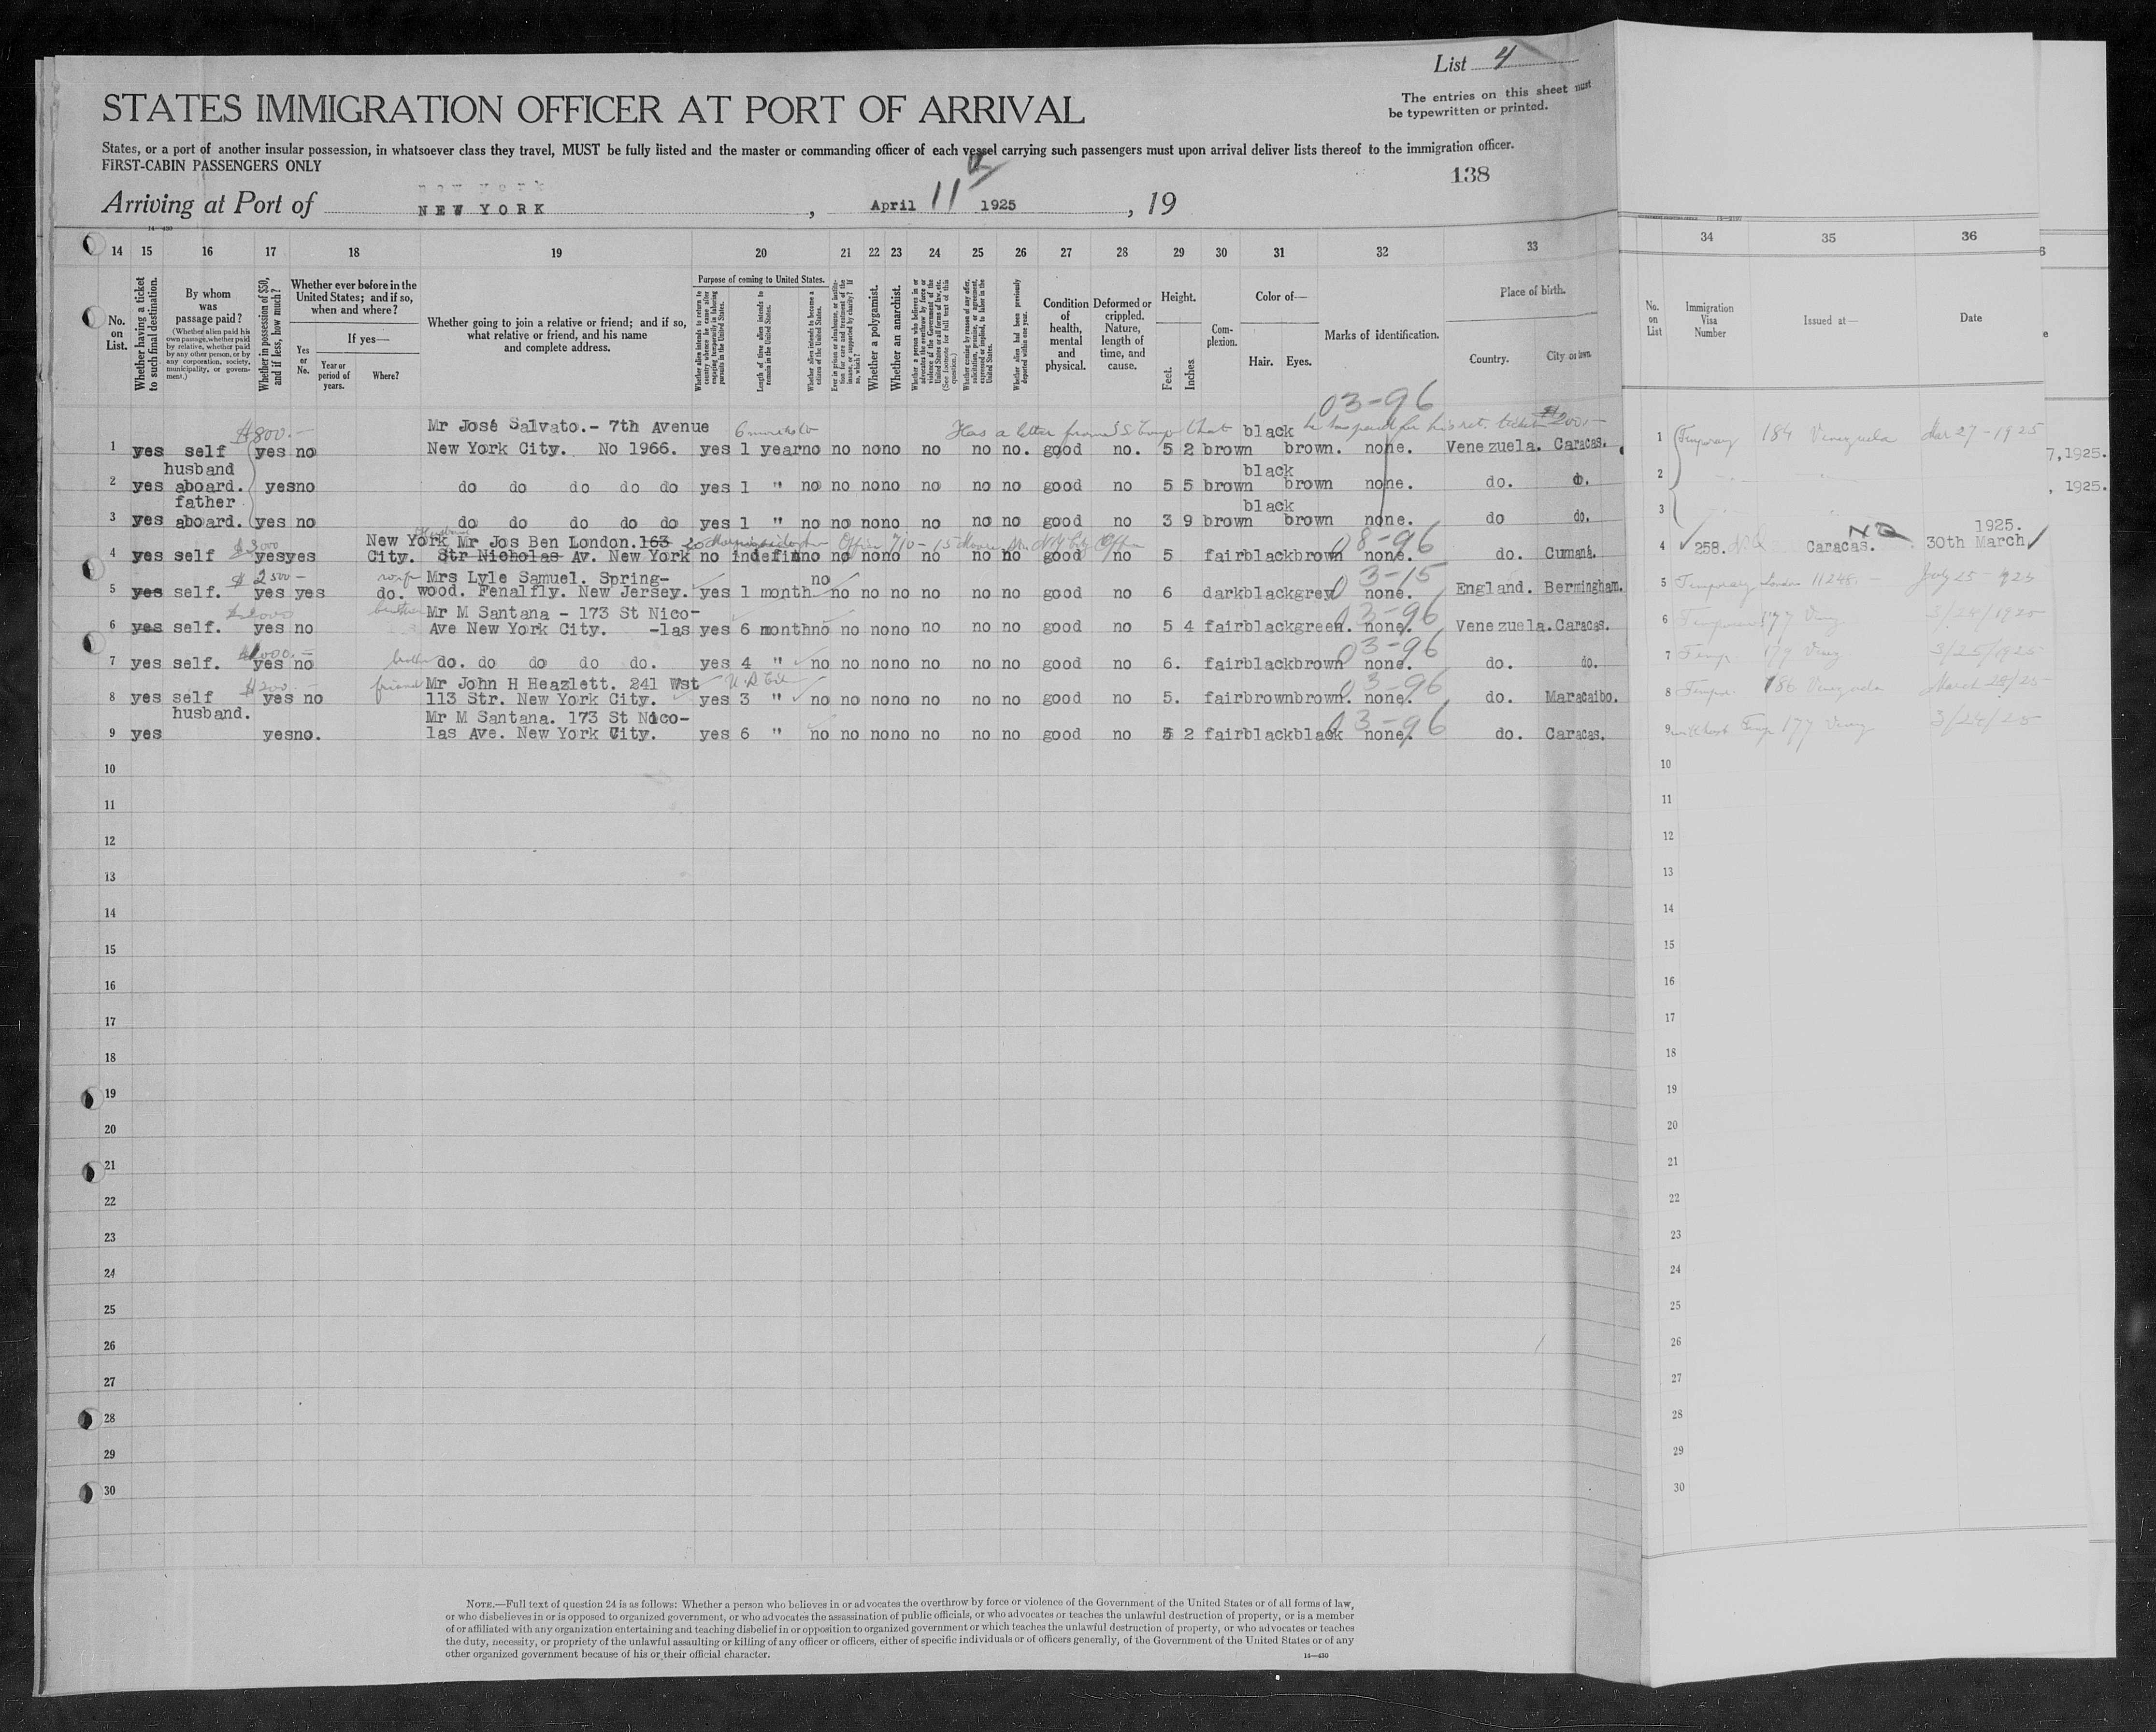 List 4
The entries on this sheet must
be typewritten or printed.
STATES IMMIGRATION OFFICER AT PORT OF ARRIVAL
States, or a port of another insular possession, in whatsoever class they travel, MUST be fully listed and the master or commanding officer of each vessel carrying such passengers must upon arrival deliver lists thereof to the immigration officer.
FIRST-CABIN PASSENGERS ONLY
138
Arriving at Port of NEW YORK , April 11 1925 , 19
14 15 16 17 18 19 20 21 22 23 24 25 26 27 28 29 30 31 32 33 34 35 36
No. on List.
Whether having a ticket to such final destination.
By whom was passage paid?
(Whether alien paid his own passage, whether paid by relative, whether paid by any other person, or by any corporation, society, municipality, or government.)
Whether in possession of $50, and if less, how much?
Whether ever before in the United States; and if so, when and where?
If yes—
Yes or No.
Year or period of years.
Where?
Whether going to join a relative or friend; and if so, what relative or friend, and his name and complete address.
Purpose of coming to United States.
Whether alien intends to return to country whence he came after engaging temporarily in laboring pursuits in the United States.
Length of time alien intends to remain in the United States.
Whether alien intends to become a citizen of the United States.
Ever in prison or almshouse, or institution for care and treatment of the insane, or supported by charity? If so, which?
Whether a polygamist.
Whether an anarchist.
Whether coming by reason of any offer, solicitation, promise, or agreement, expressed or implied, to labor in the United States.
Whether alien had been previously deported within one year.
Condition of health, mental and physical.
Deformed or crippled. Nature, length of time, and cause.
Height.
Feet. Inches.
Complexion.
Color of—
Hair. Eyes.
Marks of identification.
Place of birth.
Country. City or town.
No. on List
Immigration Visa Number
Issued at—
Date
03-96
Mr José Salvato.- 7th Avenue 6 months Has a letter from S S Comp that he has paid for his ret. ticket $200.-
$800.- black
1 yes self yes no New York City. No 1966. yes 1 year no no no no no no no. good no. 5 2 brown brown. none. Venezuela. Caracas.
1 Temporary 184 Venezuela Mar 27-1925
7, 1925.
husband black
2 yes aboard. yes no do do do do do yes 1 " no no no no no no no good no 5 5 brown brown none. do. do.
2
, 1925.
father black
3 yes aboard. yes no do do do do do yes 1 " no no no no no no no good no 3 9 brown brown none. do do.
3
New York Mr Jos Ben London. 163 08-96
4 yes self $3000 yes yes City. Str Nicholas Av. New York no indefin no no no no no no no good no 5 fair black brown none. do. Cumaná.
1925.
4 258. Caracas. 30th March
wife Mrs Lyle Samuel. Spring- no 03-15
$2500-
5 yes self. yes yes do. wood. Fenalfly. New Jersey. yes 1 month. no no no no no no good no 6 dark black grey none. England. Bermingham.
5 Temporary London 11248. - July 25-1925
brother Mr M Santana - 173 St Nico- 03-96
6 yes self. yes no Ave New York City. -las yes 6 month no no no no no no no good no 5 4 fair black green. none. Venezuela. Caracas.
6 177 3/24/1925
03-96
7 yes self. yes no brother do. do do do do. yes 4 " no no no no no no no good no 6. fair black brown none. do. do.
7 Temp. 177 3/25/1925
friend Mr John H Heazlett. 241 Wst 03-96
8 yes self $200.- yes no 113 Str. New York City. yes 3 " no no no no no no no good no 5. fair brown brown. none. do. Maracaibo.
8 186 Venezuela
husband. Mr M Santana. 173 St Nico- 03-96
9 yes yes no. las Ave. New York City. yes 6 " no no no no no no no good no 5 2 fair black black none. do. Caracas.
9 177 3/24/25
10 10
11 11
12 12
13 13
14 14
15 15
16 16
17 17
18 18
19 19
20 20
21 21
22 22
23 23
24 24
25 25
26 26
27 27
28 28
29 29
30 30
NOTE.—Full text of question 24 is as follows: Whether a person who believes in or advocates the overthrow by force or violence of the Government of the United States or of all forms of law,
or who disbelieves in or is opposed to organized government, or who advocates the assassination of public officials, or who advocates or teaches the unlawful destruction of property, or is a member
of or affiliated with any organization entertaining and teaching disbelief in or opposition to organized government or which teaches the unlawful destruction of property, or who advocates or teaches
the duty, necessity, or propriety of the unlawful assaulting or killing of any officer or officers, either of specific individuals or of officers generally, of the Government of the United States or of any
other organized government because of his or their official character.
14—430